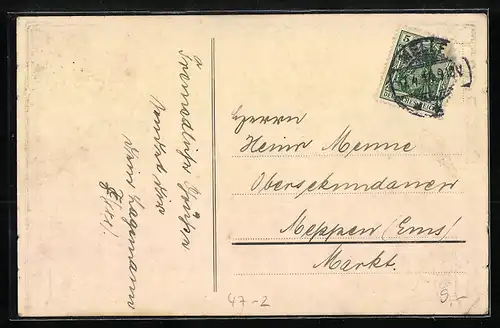 Freundliche Grüße
sendet dir
dein Hagemann
Herrn
Heinr Menne
Obersekundaner
Meppen (Ems)
Markt.
5
47-2
5,-